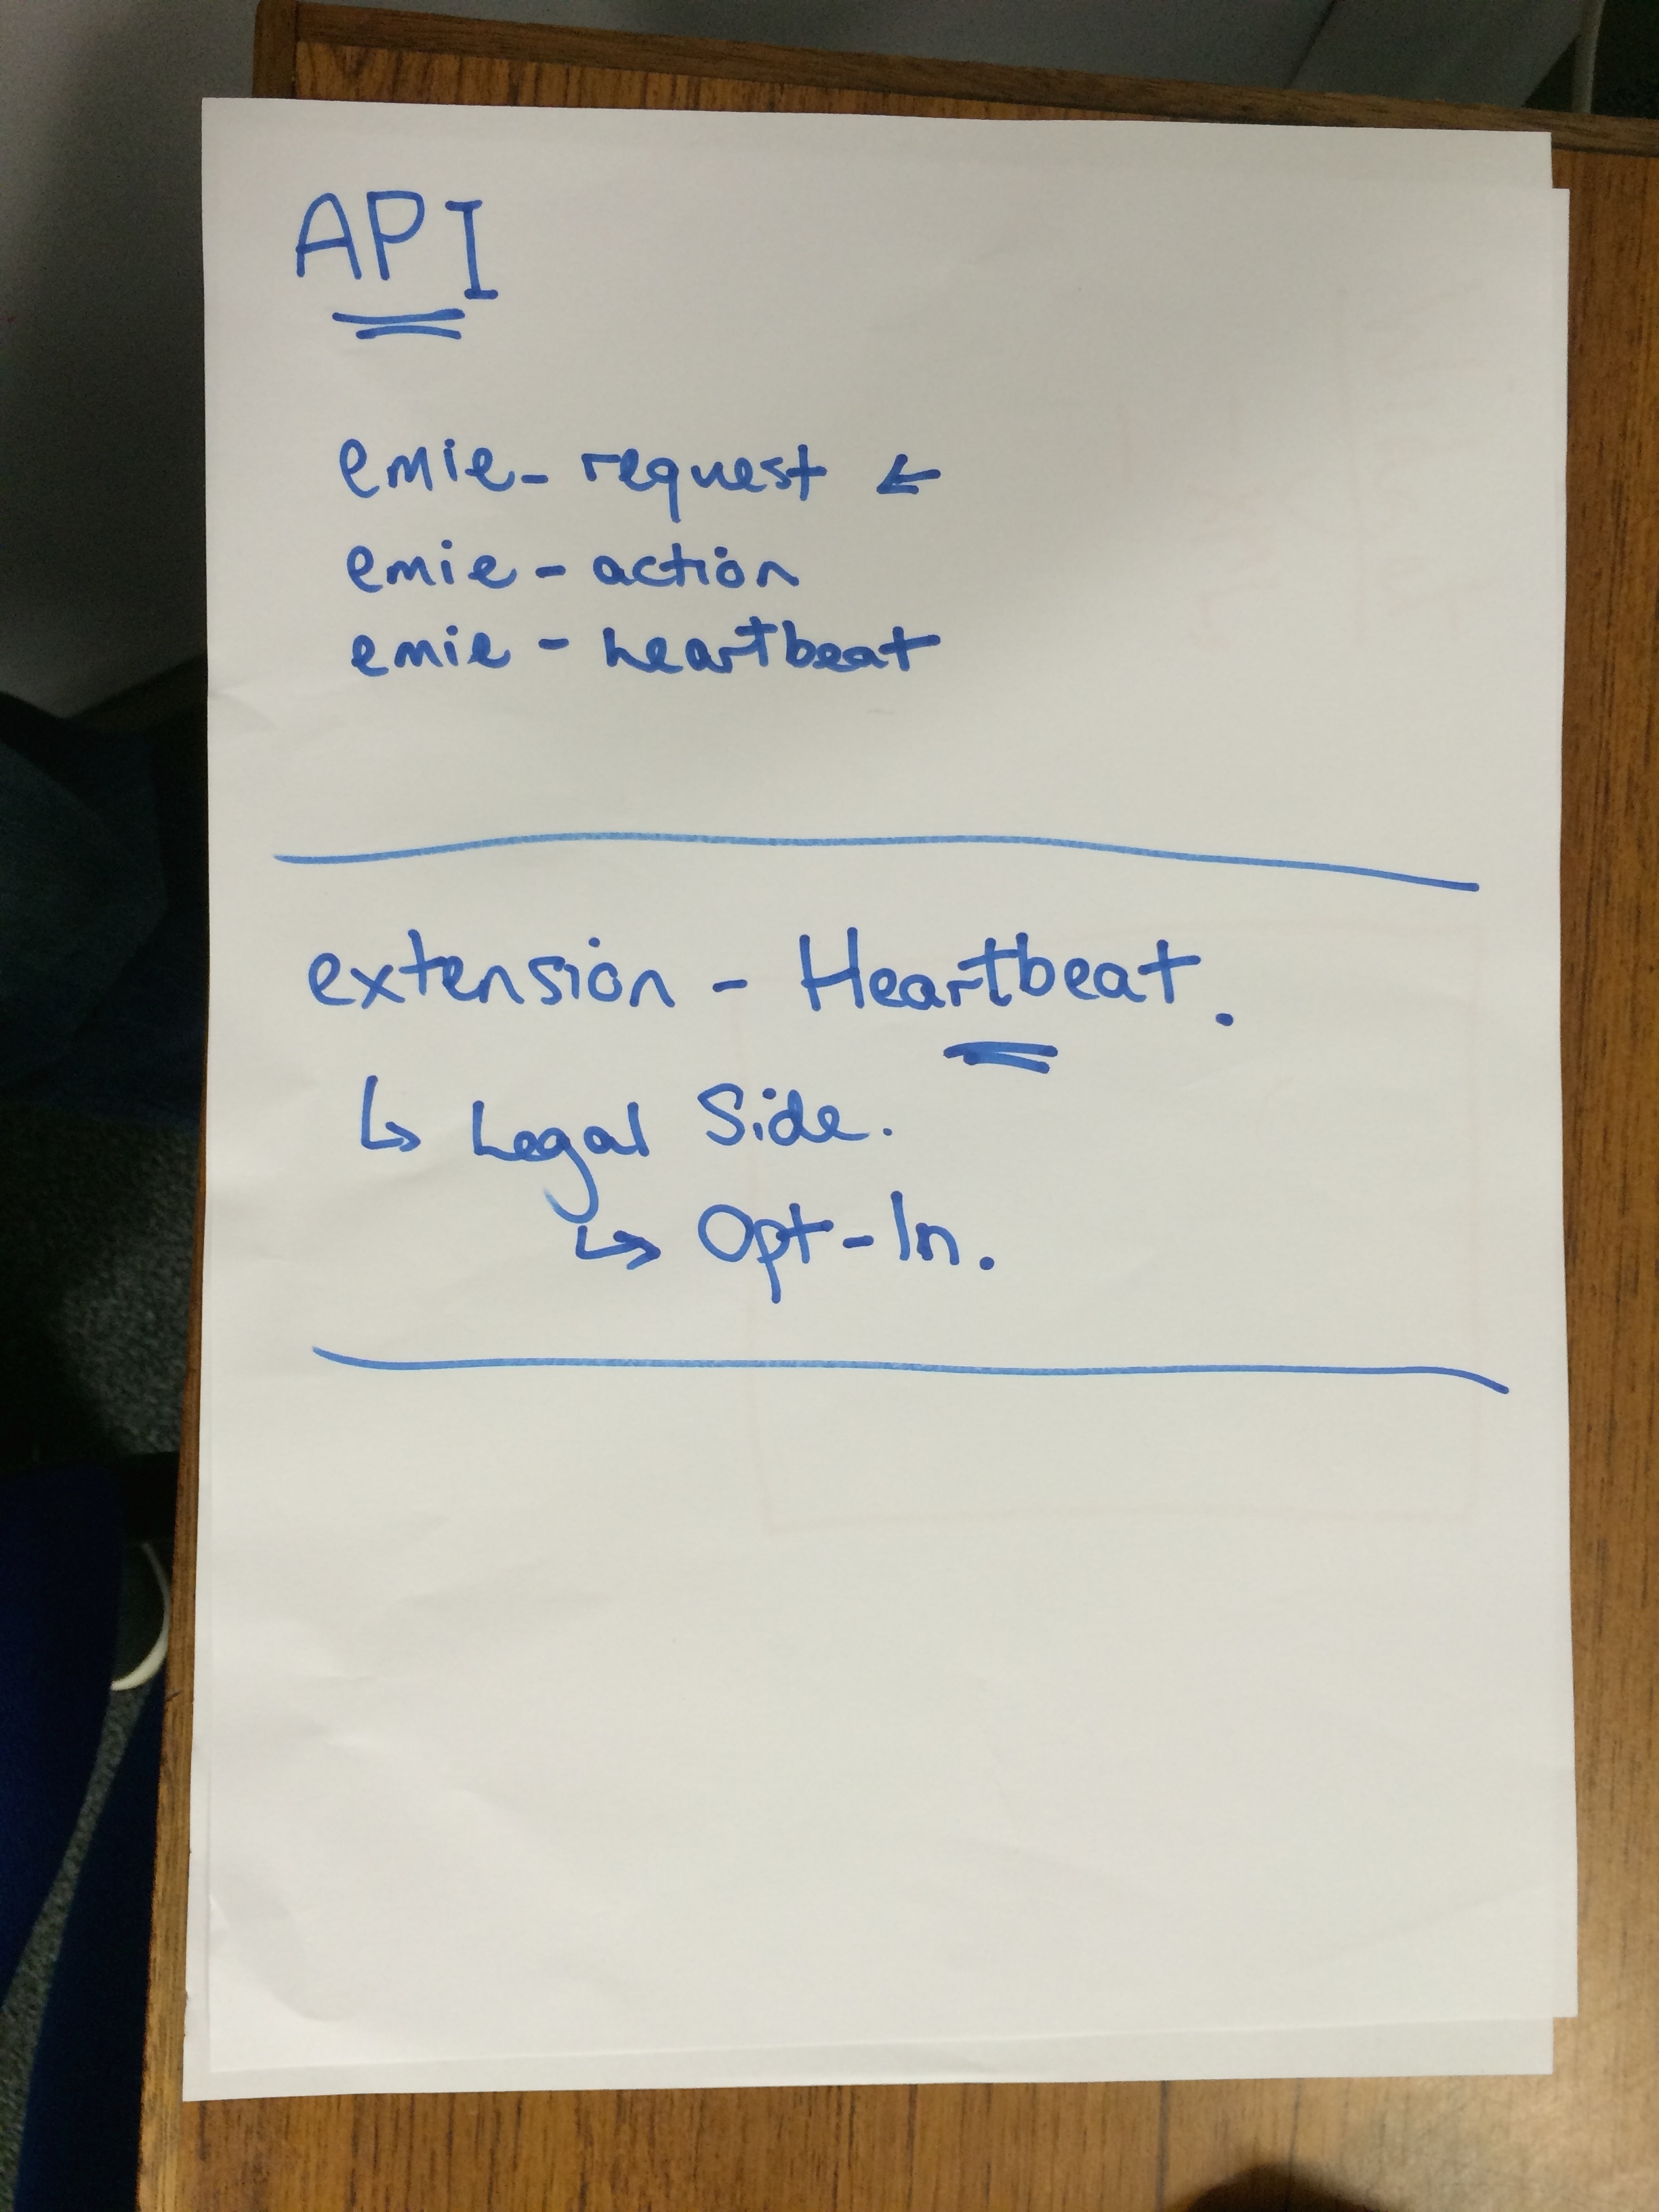 API
emie-request ←
emie - action
emie - heartbeat
extension - Heartbeat.
↳ Legal Side.
↳ Opt-In.